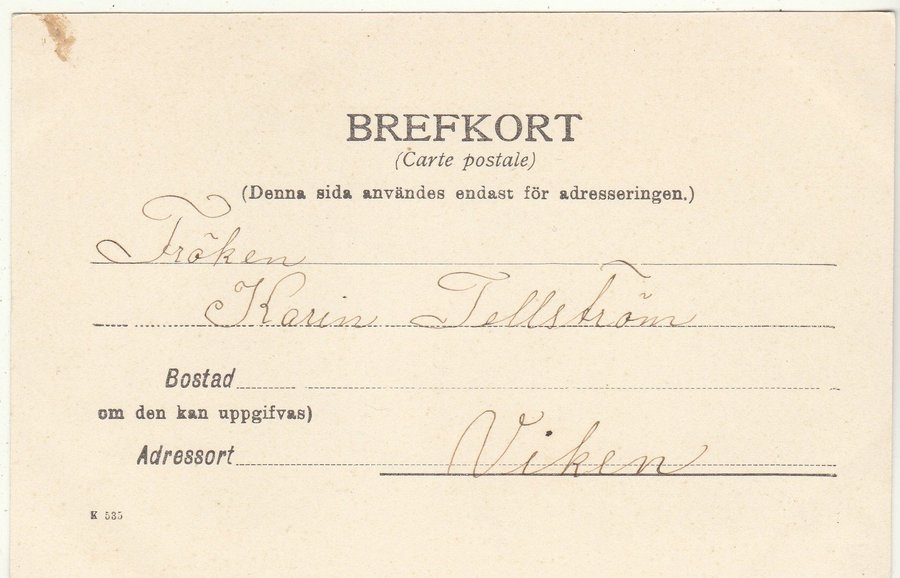 BREFKORT
(Carte postale)
(Denna sida användes endast för adresseringen.)
Fröken
Karin Tellström
Bostad
om den kan uppgifvas)
Adressort
Viken
K 535